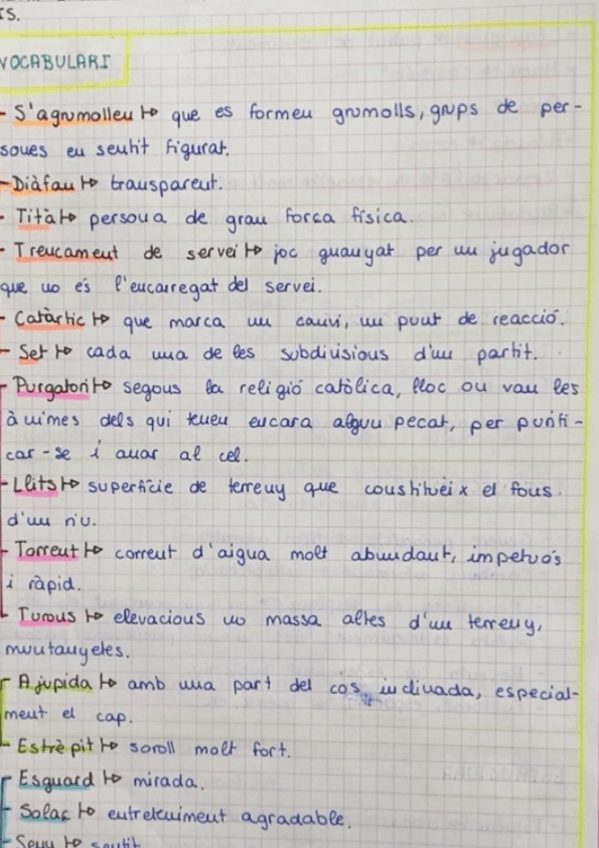 TS.
VOCABULARI
- S'agrumolleu → que es formeu grumolls, grups de per-
sones en sentit figurat.
- Diàfan → transparent.
- Tità → persona de gran força física.
- Trencament de servei → joc guanyat per un jugador
que no és l'encarregat del servei.
- Catàrtic → que marca un canvi, un punt de reacció.
- Set → cada una de les subdivisions d'un partit.
- Purgatori → segons la religió catòlica, lloc on van les
ànimes dels qui tenen encara algun pecat, per purifi-
car-se i anar al cel.
- Llits → superfície de terreny que constitueix el fons
d'un riu.
- Torrent → corrent d'aigua molt abundant, impetuós
i ràpid.
- Turons → elevacions no massa altes d'un terreny,
muntanyetes.
- Ajupida → amb una part del cos inclinada, especial-
ment el cap.
- Estrèpit → soroll molt fort.
- Esguard → mirada.
- Solaç → entreteniment agradable.
- Seny → sentit